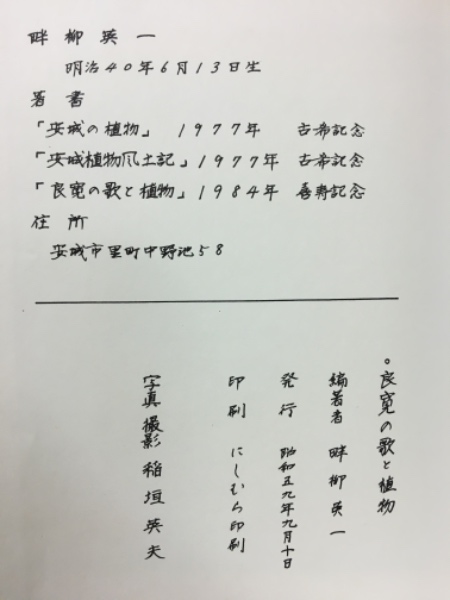 畔柳英一
明治40年6月13日生
著書
「安城の植物」 1977年 古希記念
「安城植物風土記」1977年 古希記念
「良寛の歌と植物」1984年 喜寿記念
住所
安城市里町中野池58
。良寛の歌と植物
編著者 畔柳英一
発行 昭和五九年九月十日
印刷 にしむら印刷
写真撮影 稲垣英夫